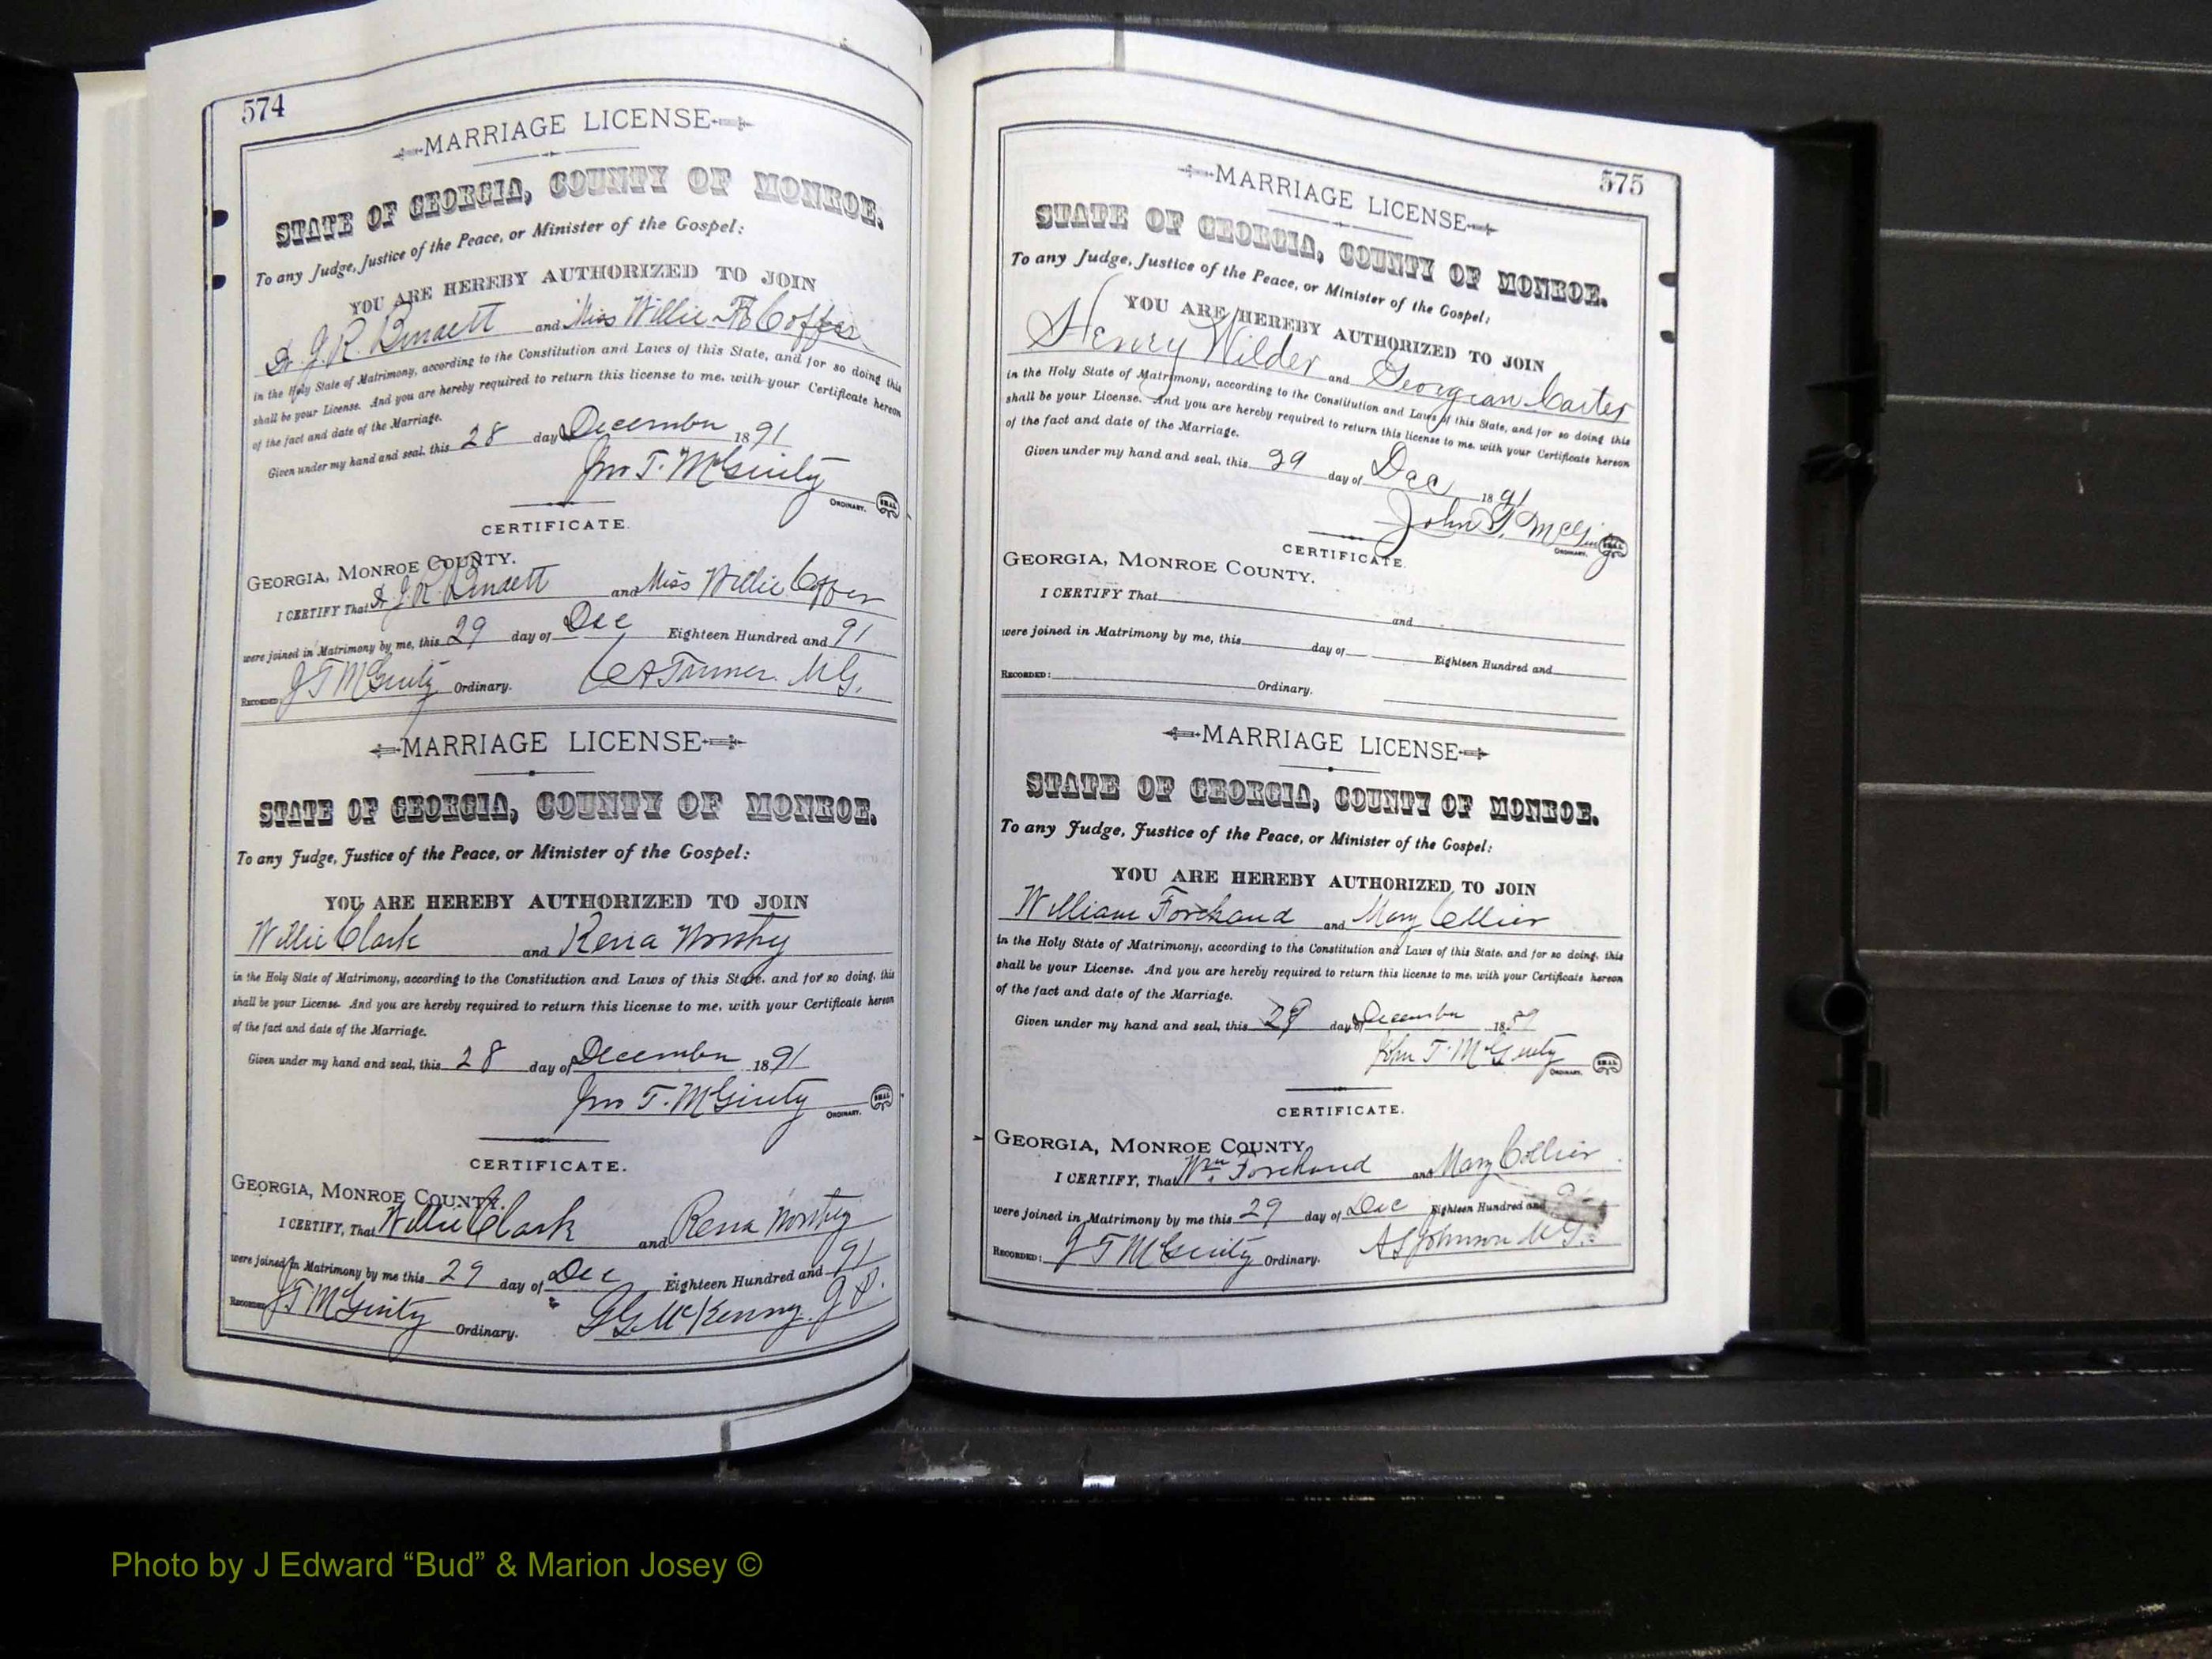 574
MARRIAGE LICENSE
STATE OF GEORGIA, COUNTY OF MONROE.
To any Judge, Justice of the Peace, or Minister of the Gospel:
YOU ARE HEREBY AUTHORIZED TO JOIN
Dr. J. R. and Miss Willie
in the Holy State of Matrimony, according to the Constitution and Laws of this State, and for so doing this
shall be your License. And you are hereby required to return this license to me, with your Certificate hereon
of the fact and date of the Marriage.
Given under my hand and seal, this 28 day of December 1891
Jno T. McGinty
ORDINARY. SEAL
CERTIFICATE.
GEORGIA, MONROE COUNTY.
I CERTIFY That J. R. and Miss Willie
were joined in Matrimony by me, this 29 day of Dec Eighteen Hundred and 91
RECORDED: J T McGinty Ordinary. Tanner. M.G.
MARRIAGE LICENSE
STATE OF GEORGIA, COUNTY OF MONROE.
To any Judge, Justice of the Peace, or Minister of the Gospel:
YOU ARE HEREBY AUTHORIZED TO JOIN
Willie Clark and Rena
in the Holy State of Matrimony, according to the Constitution and Laws of this State, and for so doing, this
shall be your License. And you are hereby required to return this license to me, with your Certificate hereon
of the fact and date of the Marriage.
Given under my hand and seal, this 28 day of December 1891
Jno T. McGinty
ORDINARY. SEAL
CERTIFICATE.
GEORGIA, MONROE COUNTY.
I CERTIFY, That Willie Clark and Rena
were joined in Matrimony by me this 29 day of Dec Eighteen Hundred and 91
RECORDED: J T McGinty Ordinary. McKenny. J P.
575
MARRIAGE LICENSE
STATE OF GEORGIA, COUNTY OF MONROE.
To any Judge, Justice of the Peace, or Minister of the Gospel:
YOU ARE HEREBY AUTHORIZED TO JOIN
Henry Wilder and Georgian Carter
in the Holy State of Matrimony, according to the Constitution and Laws of this State, and for so doing this
shall be your License. And you are hereby required to return this license to me, with your Certificate hereon
of the fact and date of the Marriage.
Given under my hand and seal, this 29 day of Dec 1891
John T. McGinty
ORDINARY. SEAL
CERTIFICATE.
GEORGIA, MONROE COUNTY.
I CERTIFY That and
were joined in Matrimony by me, this day of Eighteen Hundred and
RECORDED: Ordinary.
MARRIAGE LICENSE
STATE OF GEORGIA, COUNTY OF MONROE.
To any Judge, Justice of the Peace, or Minister of the Gospel:
YOU ARE HEREBY AUTHORIZED TO JOIN
William Forehand and Mary Collier
in the Holy State of Matrimony, according to the Constitution and Laws of this State, and for so doing, this
shall be your License. And you are hereby required to return this license to me, with your Certificate hereon
of the fact and date of the Marriage.
Given under my hand and seal, this day of December 18
John T. McGinty
ORDINARY. SEAL
CERTIFICATE.
GEORGIA, MONROE COUNTY.
I CERTIFY, That Wm. Forehand and Mary Collier
were joined in Matrimony by me this 29 day of Dec Eighteen Hundred and
RECORDED: J T McGinty Ordinary. A S Johnson M G.
Photo by J Edward “Bud” & Marion Josey ©